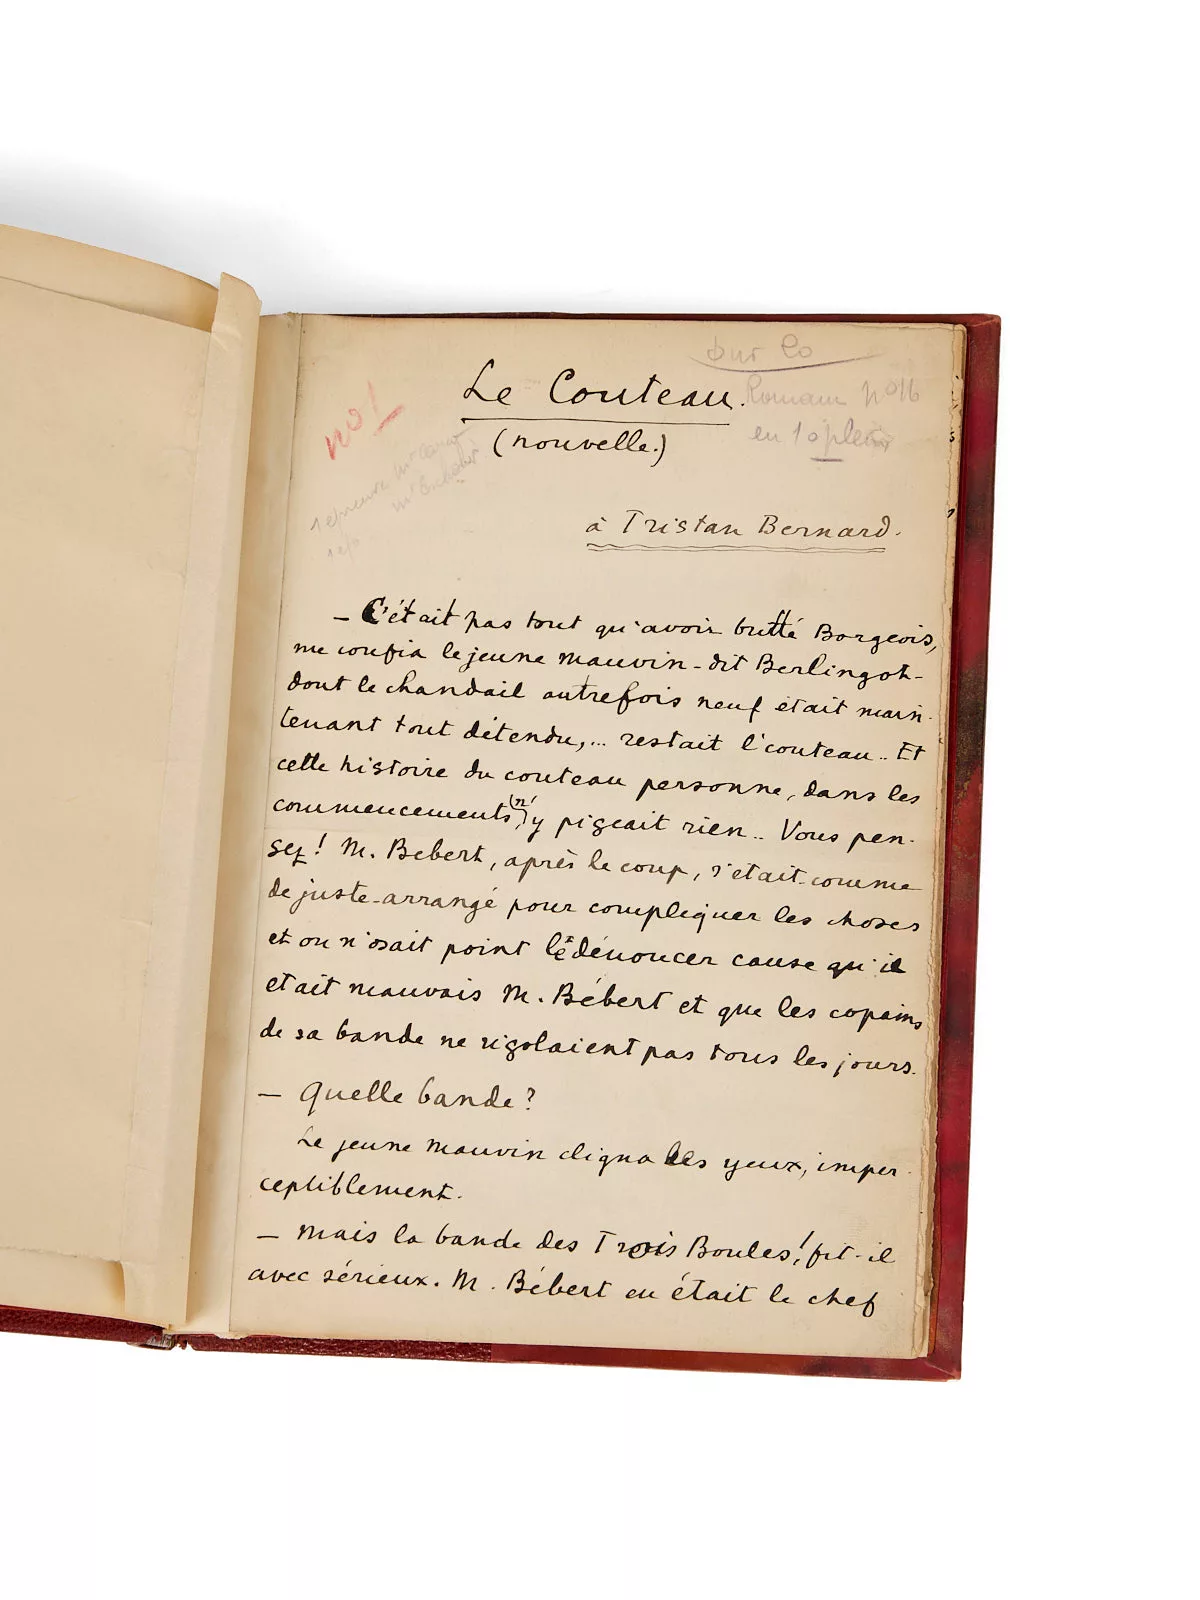 sur 20
Le Couteau.
Romain nº 16
no!
(nouvelle.)
en 10 plein
à Tristan Bernard.
— C'était pas tout qu'avoir butté Borgeois,
me confia le jeune Mauvin - dit Berlingot -
dont le chandail autrefois neuf était main-
tenant tout détendu,... restait l'couteau.. Et
cette histoire du couteau personne, dans les
commencements, (n') y pigeait rien.. Vous pen-
sez! M. Bébert, après le coup, s'était - comme
de juste - arrangé pour compliquer les choses
et on n'osait point le dénoncer cause qu'il
était mauvais M. Bébert et que les copains
de sa bande ne rigolaient pas tous les jours.
— Quelle bande?
Le jeune Mauvin cligna les yeux, imper-
ceptiblement.
— Mais la bande des Trois Boules! fit-il
avec sérieux. M. Bébert en était le chef